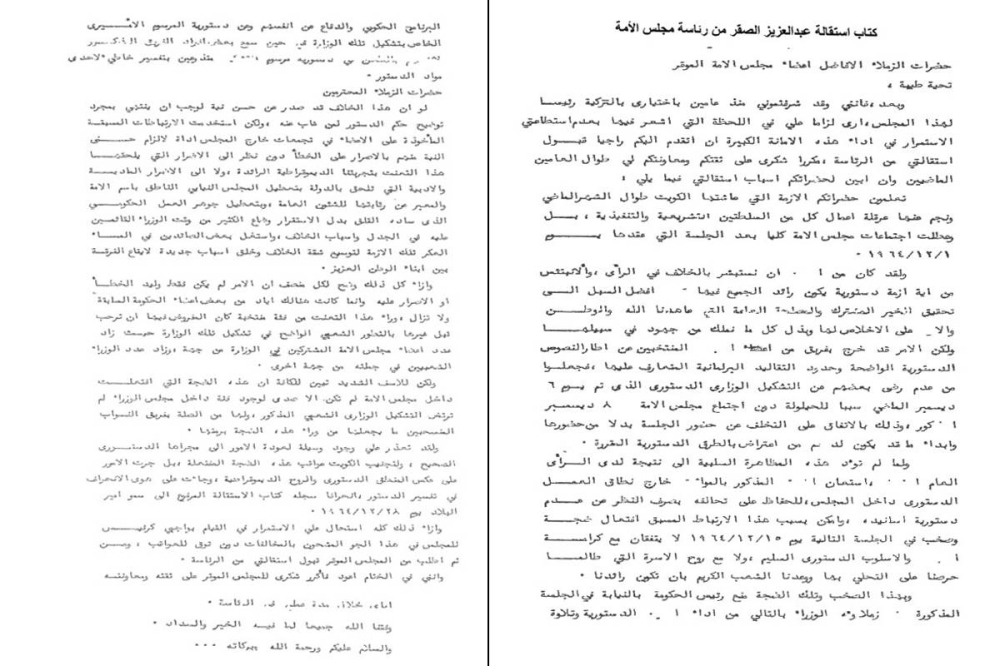 كتاب استقالة عبدالعزيز الصقر من رئاسة مجلس الأمة
حضرات الزملاء الافاضل اعضاء مجلس الامة الموقر
تحية طيبة ،
وبعد ،فانني وقد شرفتموني منذ عامين باختياري بالتزكية رئيسا
لهذا المجلس،ارى لزاما علي في اللحظة التي اشعر فيها بعدم استطاعتي
الاستمرار في اداء هذه الامانة الكبيرة ان اتقدم اليكم راجيا قبول
استقالتي من الرئاسة ،مكررا شكرى على ثقتكم ومعاونتكم لي طوال العامين
الماضيين وان ابين لحضراتكم اسباب استقالتي فيما يلي :
تعلمون حضراتكم الازمة التي عاشتها الكويت طوال الشهر الماضي
ونجم عنها عرقلة اعمال كل من السلطتين التشريعية والتنفيذية ، بل
وعطلت اجتماعات مجلس الامة كليا بعد الجلسة التي عقدها يوم
١٩٦٤/١٢/١ ٠
ولقد كان من ان نستبشر بالخلاف في الرأى ،والانبثقتس
من اية ازمة دستورية يكون رائد الجميع فيها افضل السبل الى
تحقيق الخير المشترك والمصلحة العامة التي عاهدنا الله والوطن
على الاخلاص لها وبذل كل ما نملك من جهود في سبيلها
ولكن الامر قد خرج بفريق من المنتخبين عن اطار النصوص
الدستورية الواضحة وحدود التقاليد البرلمانية المتعارف عليها ،فجعلوا
من عدم رضى بعضهم عن التشكيل الوزارى الدستورى الذى تم يوم ٦
ديسمبر الماضي سببا للحيلولة دون اجتماع مجلس الامة ٨ ديسمبر
كور ،وذلك بالاتفاق على التخلف عن حضور الجلسة بدلا من حضورها
وابداء ما قد يكون لدهم من اعتراض بالطرق الدستورية المقررة ٠
ولما لم تؤد هذه المظاهرة السلبية الى نتيجة لدى الرأى
العام ، استعان المذكور بالمو خارج نطاق العمل
الدستورى داخل المجلس،للحفاظ على تحالفه بصرف النظر عن عدم
دستورية اسانيده ،وامكن بسبب هذا الارتباط المسبق افتعال ضجة
وصخب في الجلسة التالية يوم ١٩٦٤/١٢/١٥ لا يتفقان مع كرامة
والاسلوب الدستورى السليم ،ولا مع روح الاسرة التي طالما
حرصنا على التحلي بها ووعدنا الشعب الكريم بان تكون رائدنا ٠
وبهذا الصخب وتلك الضجة منع رئيس الحكومة بالنيابة في الجلسة
المذكورة زملاءه الوزراء بالتالي من اداء الدستورية وتلاوة
البرنامج الحكومي والدفاع عن انفسهم وعن دستورية المرسوم الاميرى
الخاص بتشكيل تلك الوزارة في حين سمح بعض افراد الفريق المذكور
في دستورية مرسوم متذرعين بتفسير خاطئ لاحدى
مواد الدستور ٠
حضرات الزملاء المحترمين
لو ان هذا الخلاف قد صدر عن حسن نية لوجب ان ينتهي بمجرد
توضيح حكم الدستور لمن غاب عنه ،ولكن استخدمت الارتباطات المسبقة
المأخوذة على الاعضاء في تجمعات خارج المجلس اداة لالزام حسنى
النية منهم بالاصرار على الخطأ دون نظر الى الاضرار التي يلحقها
هذا التعنت بتجربتنا الديموقراطية الرائدة ،ولا الى الاضرار المادية
والادبية التي تلحق بالدولة بتعطيل المجلس النيابي الناطق باسم الامة
والمعبر عن رقابتها للشئون العامة ،وبتعطيل جوهر العمل الحكومي
الذى ساده القلق بدل الاستقرار وضاع الكثير من وقت الوزراء القائمين
عليه في الجدل واسباب الخلاف،واستغل بعض الصائدين في الماء
العكر تلك الازمة لتوسيع شقة الخلاف وخلق اسباب جديدة لايقاع الفرقة
بين ابناء الوطن العزيز ٠
وازاء كل ذلك واضح لكل منصف ان الامر لم يكن فقط وليد الخطأ
او الاصرار عليه وانما كانت هنالك اياد من بعض اعضاء الحكومة السابقة
ولا تزال وراء هذا التعنت من فئة منتخبة كان المفروض فيها ان ترحب
قبل غيرها بالتطور الشعبي الواضح في تشكيل تلك الوزارة حيث زاد
عدد اعضاء مجلس الامة المشتركين في الوزارة من جهة ،وزاد عدد الوزراء
الشعبيين في جملته من جهة اخرى ٠
ولكن للاسف الشديد تبين للكافة ان هذه الضجة التي افتعلت
داخل مجلس الامة لم تكن الا صدى لوجود فئة داخل مجلس الوزراء لم
ترتض التشكيل الوزارى الشعبي المذكور ،ولها من الصلة بفريق النواب
المنسحبين ما يجعلها من وراء هذه الضجة برمتها ٠
ولقد تعذر علي وجود وسيلة لعودة الامور الى مجراها الدستورى
الصحيح ، ولتجنيب الكويت عواقب هذه الضجة المفتعلة ،بل جرت الامور
على عكس المنطق الدستورى والروح الديموقراطية ،وجاءت على هوى الانحراف
في تفسير الدستور ،انحرافا سجله كتاب الاستقالة المرفوع الى سمو امير
البلاد يوم ١٩٦٤/١٢/٢٨ ٠
وازاء ذلك كله استحال علي الاستمرار في القيام بواجبي كرئيس
للمجلس في هذا الجو المشحون بالمخالفات دون توق للعواقب ، ومن
ثم اطلب من المجلس الموقر قبول استقالتي من الرئاسة ٠
وانني في الختام اعود فأكرر شكرى للمجلس الموقر على ثقته ومعاونته
خلال مدة الرئاسة ٠
وفقنا الله جميعا لما فيه الخير والسداد ٠
والسلام عليكم ورحمة الله وبركاته ٠٠٠